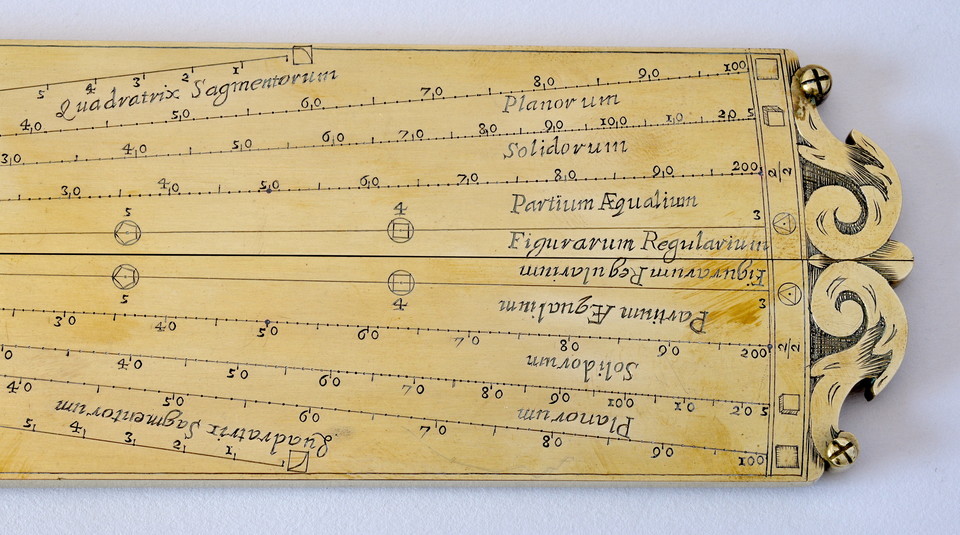 5 4 3 2 1
Quadratrix Sagmentorum
4,0 5,0 6,0 7,0 8,0 9,0 100
Planorum
3,0 4,0 5,0 6,0 7,0 8,0 9,0 10,0 1,0 2,0 5
Solidorum
3,0 4,0 5,0 6,0 7,0 8,0 9,0 200 2/2
Partium Æqualium
5 4 3
Figurarum Regularium
Figurarum Regularium
5 4 3
Partium Æqualium
3,0 4,0 5,0 6,0 8,0 9,0 200 2/2
Solidorum
4,0 5,0 6,0 7,0 8,0 9,0 10,0 1,0 2,0 5
Planorum
4,0 5,0 6,0 7,0 8,0 9,0 100
Quadratrix Sagmentorum
5 4 3 2 1